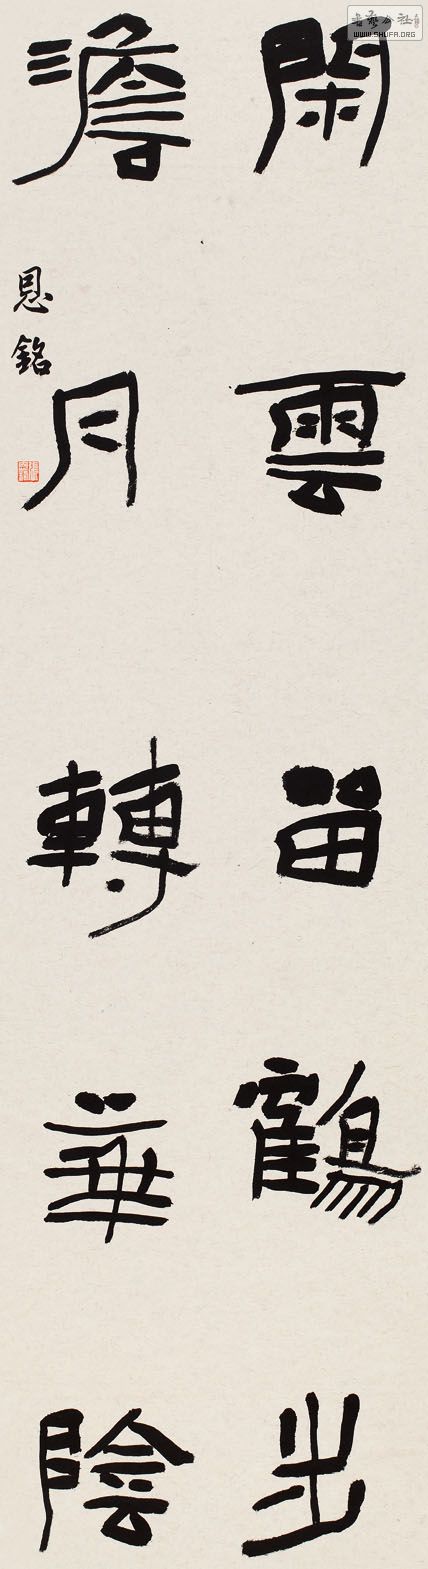 閑雲留鶴步
澹月轉華陰
恩銘
書藝公社
WWW.SHUFA.ORG